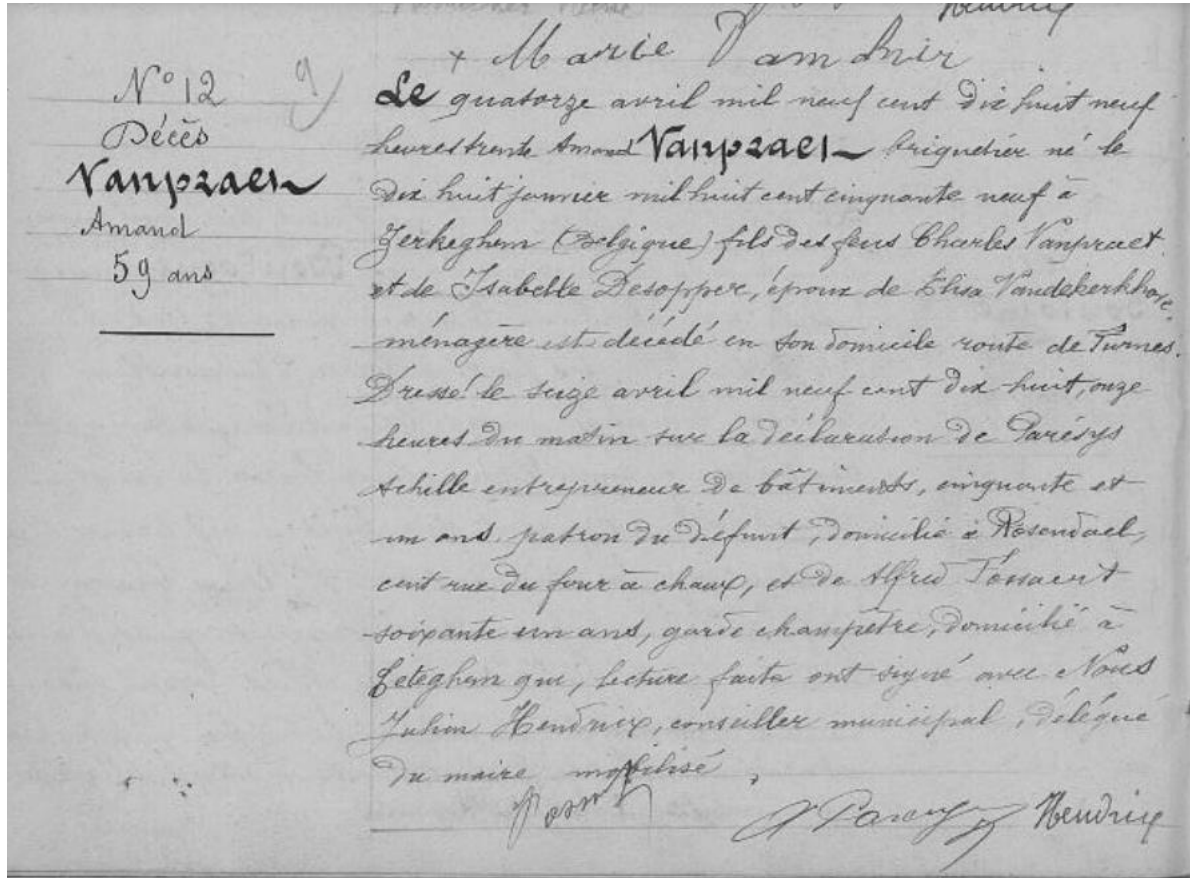 Hendrix
+ Marie Vamdnir
N° 12
Décès
Vanpraet
Amand
59 ans
Le quatorze avril mil neuf cent dix huit neuf
heures trente Amand Vanpraet briquetier né le
dix huit janvier mil huit cent cinquante neuf à
Zerkeghem (Belgique) fils des feus Charles Vanpraet
et de Isabelle Desopper, époux de Elisa Vandekerkhove,
ménagère est décédé en son domicile route de Furnes.
Dressé le seize avril mil neuf cent dix huit, onze
heures du matin sur la déclaration de Parésys
Achille entrepreneur de bâtiments, cinquante et
un ans patron du défunt, domicilié à Rosendael,
cent rue du four à chaux, et de Alfred Tossaert
soixante un ans, garde champêtre, domicilié à
Teteghem qui, lecture faite ont signé avec Nous
Julien Hendrix, conseiller municipal, délégué
du maire mobilisé
Hendrix